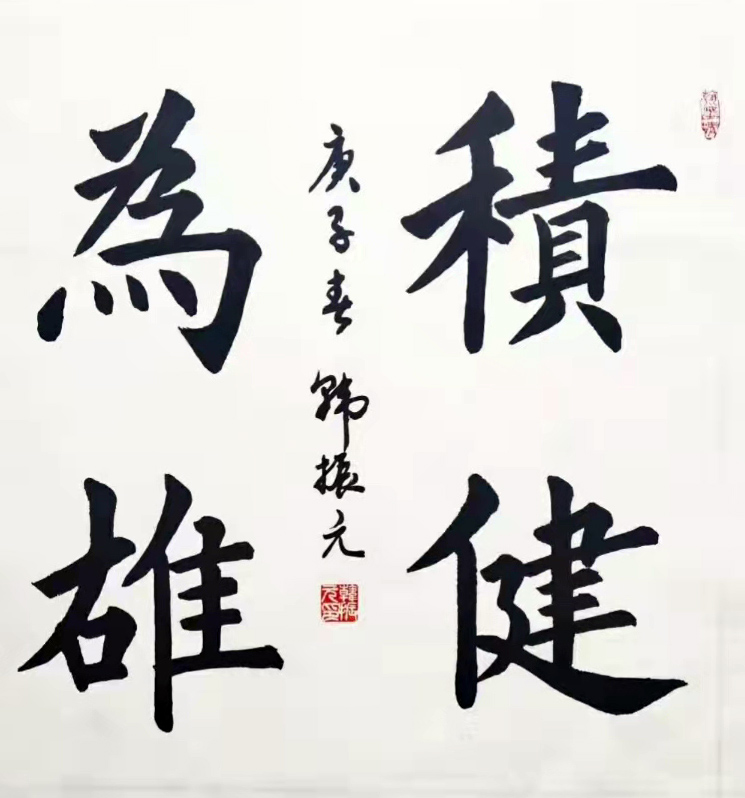 積健
為雄
庚子春 韩振元
韓振元印